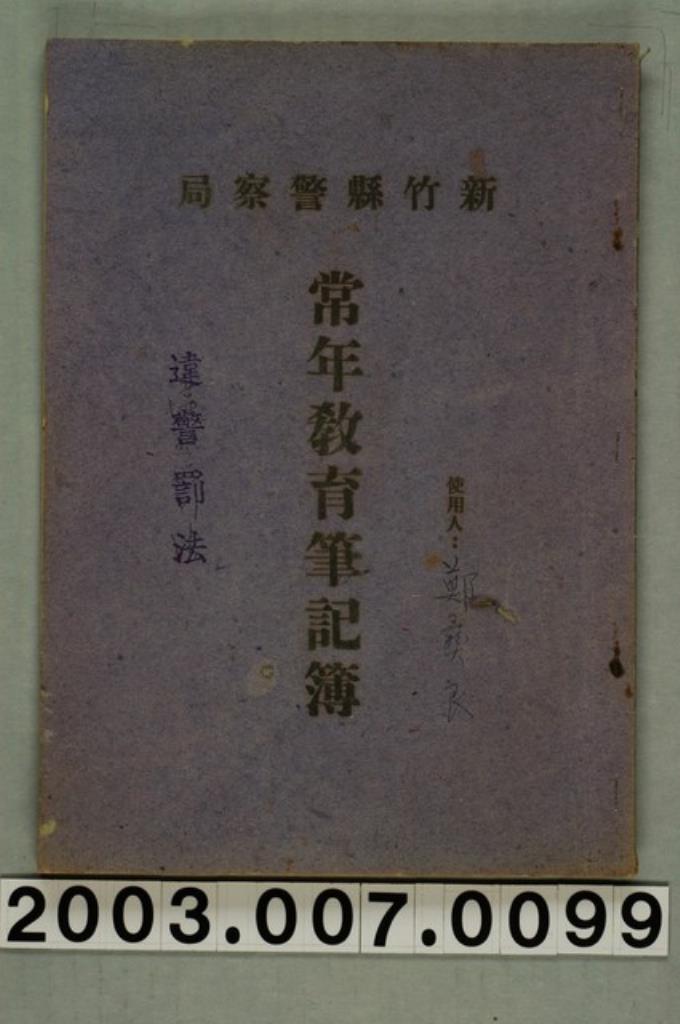 新竹縣警察局
常年教育筆記簿
使用人：鄭彝良
違警罰法
2003.007.0099